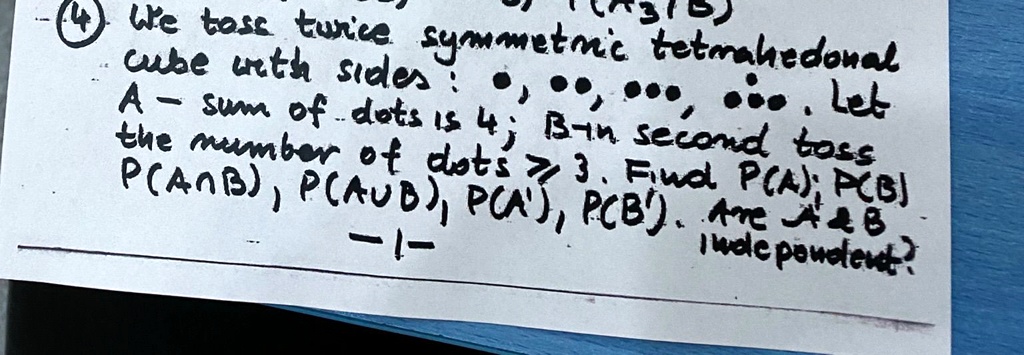 P(A3/B)
④ We toss twice symmetric tetrahedonal
cube with sides: •, ••, •••, ••••. Let
A - sum of dots is 4; B-in second toss
the number of dots ⩾ 3. Find P(A); P(B)
P(A∩B), P(A∪B), P(A'), P(B'). Are A & B
independent?
-1-